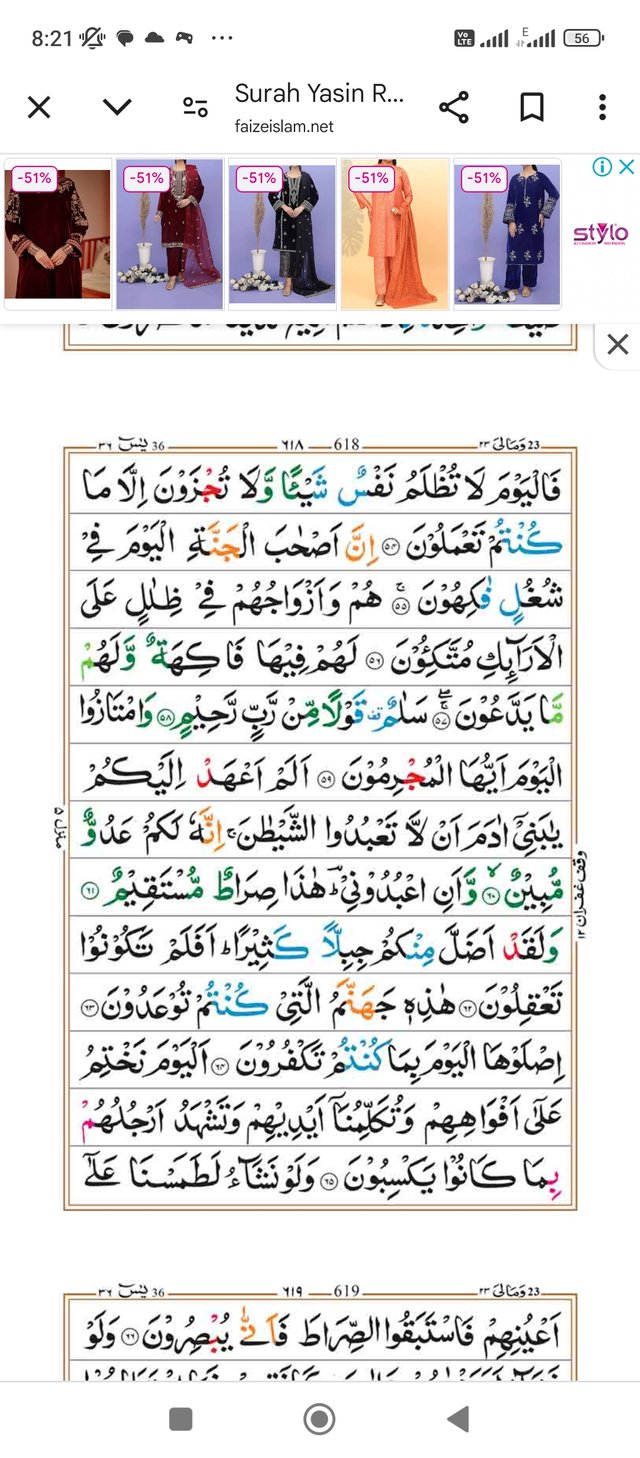 8:21
Vo LTE E 56
Surah Yasin R...
faizeislam.net
-51% -51% -51% -51% -51%
stylo
36 يٰسٓ ٣٦ ٦١٨ 618 23 وَمَالِىَ ٢٣
فَالْيَوْمَ لَا تُظْلَمُ نَفْسٌ شَيْـًٔا وَّلَا تُجْزَوْنَ اِلَّا مَا
كُنْتُمْ تَعْمَلُوْنَ ﴿٥٤﴾ اِنَّ اَصْحٰبَ الْجَنَّةِ الْيَوْمَ فِيْ
شُغُلٍ فٰكِهُوْنَ ﴿٥٥﴾ هُمْ وَاَزْوَاجُهُمْ فِيْ ظِلٰلٍ عَلَى
الْاَرَآئِكِ مُتَّكِـُٔوْنَ ﴿٥٦﴾ لَهُمْ فِيْهَا فَاكِهَةٌ وَّلَهُمْ
مَّا يَدَّعُوْنَ ﴿٥٧﴾ سَلٰمٌ قَوْلًا مِّنْ رَّبٍّ رَّحِيْمٍ ﴿٥٨﴾ وَامْتَازُوا
الْيَوْمَ اَيُّهَا الْمُجْرِمُوْنَ ﴿٥٩﴾ اَلَمْ اَعْهَدْ اِلَيْكُمْ
يٰبَنِيْٓ اٰدَمَ اَنْ لَّا تَعْبُدُوا الشَّيْطٰنَ ۚ اِنَّهٗ لَكُمْ عَدُوٌّ
مُّبِيْنٌ ﴿٦٠﴾ وَّاَنِ اعْبُدُوْنِيْ ؕ هٰذَا صِرَاطٌ مُّسْتَقِيْمٌ ﴿٦١﴾
وَلَقَدْ اَضَلَّ مِنْكُمْ جِبِلًّا كَثِيْرًا ؕ اَفَلَمْ تَكُوْنُوْا
تَعْقِلُوْنَ ﴿٦٢﴾ هٰذِهٖ جَهَنَّمُ الَّتِيْ كُنْتُمْ تُوْعَدُوْنَ ﴿٦٣﴾
اِصْلَوْهَا الْيَوْمَ بِمَا كُنْتُمْ تَكْفُرُوْنَ ﴿٦٤﴾ اَلْيَوْمَ نَخْتِمُ
عَلٰٓى اَفْوَاهِهِمْ وَتُكَلِّمُنَآ اَيْدِيْهِمْ وَتَشْهَدُ اَرْجُلُهُمْ
بِمَا كَانُوْا يَكْسِبُوْنَ ﴿٦٥﴾ وَلَوْ نَشَآءُ لَطَمَسْنَا عَلٰٓى
منزل ۵
وقف غفران ١٢
36 يٰسٓ ٣٦ ٦١٩ 619 23 وَمَالِىَ ٢٣
اَعْيُنِهِمْ فَاسْتَبَقُوا الصِّرَاطَ فَاَنّٰى يُبْصِرُوْنَ ﴿٦٦﴾ وَلَوْ